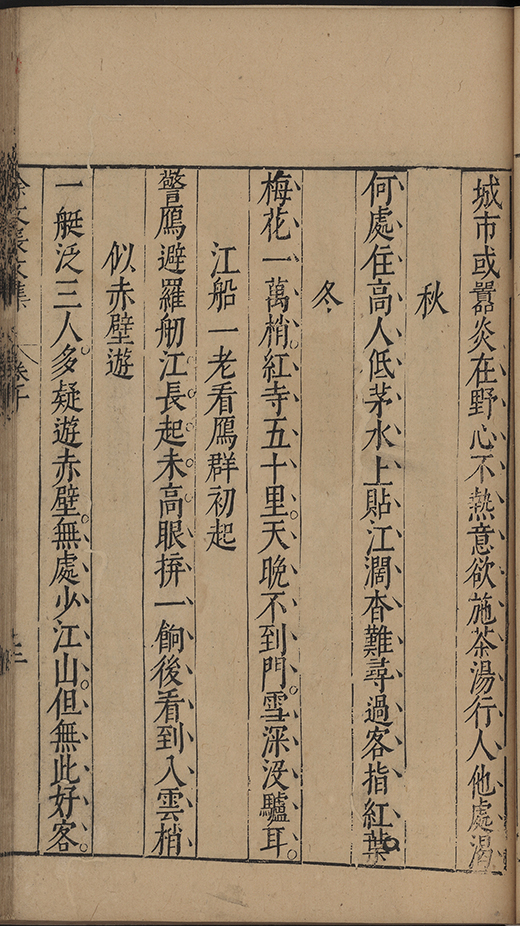 城市或囂炎在野心不熱意欲施茶湯行人他處渴
秋
何處住高人低茅水上貼江濶杳難尋過客指紅葉
冬
梅花一萬梢紅寺五十里天晚不到門雪深沒驢耳
江船一老看鴈群初起
警鴈避羅舠江長起未高眼拚一餉後看到入雲梢
似赤壁遊
一艇泛三人多疑遊赤壁無處少江山但無此好客
徐文長文集 卷十